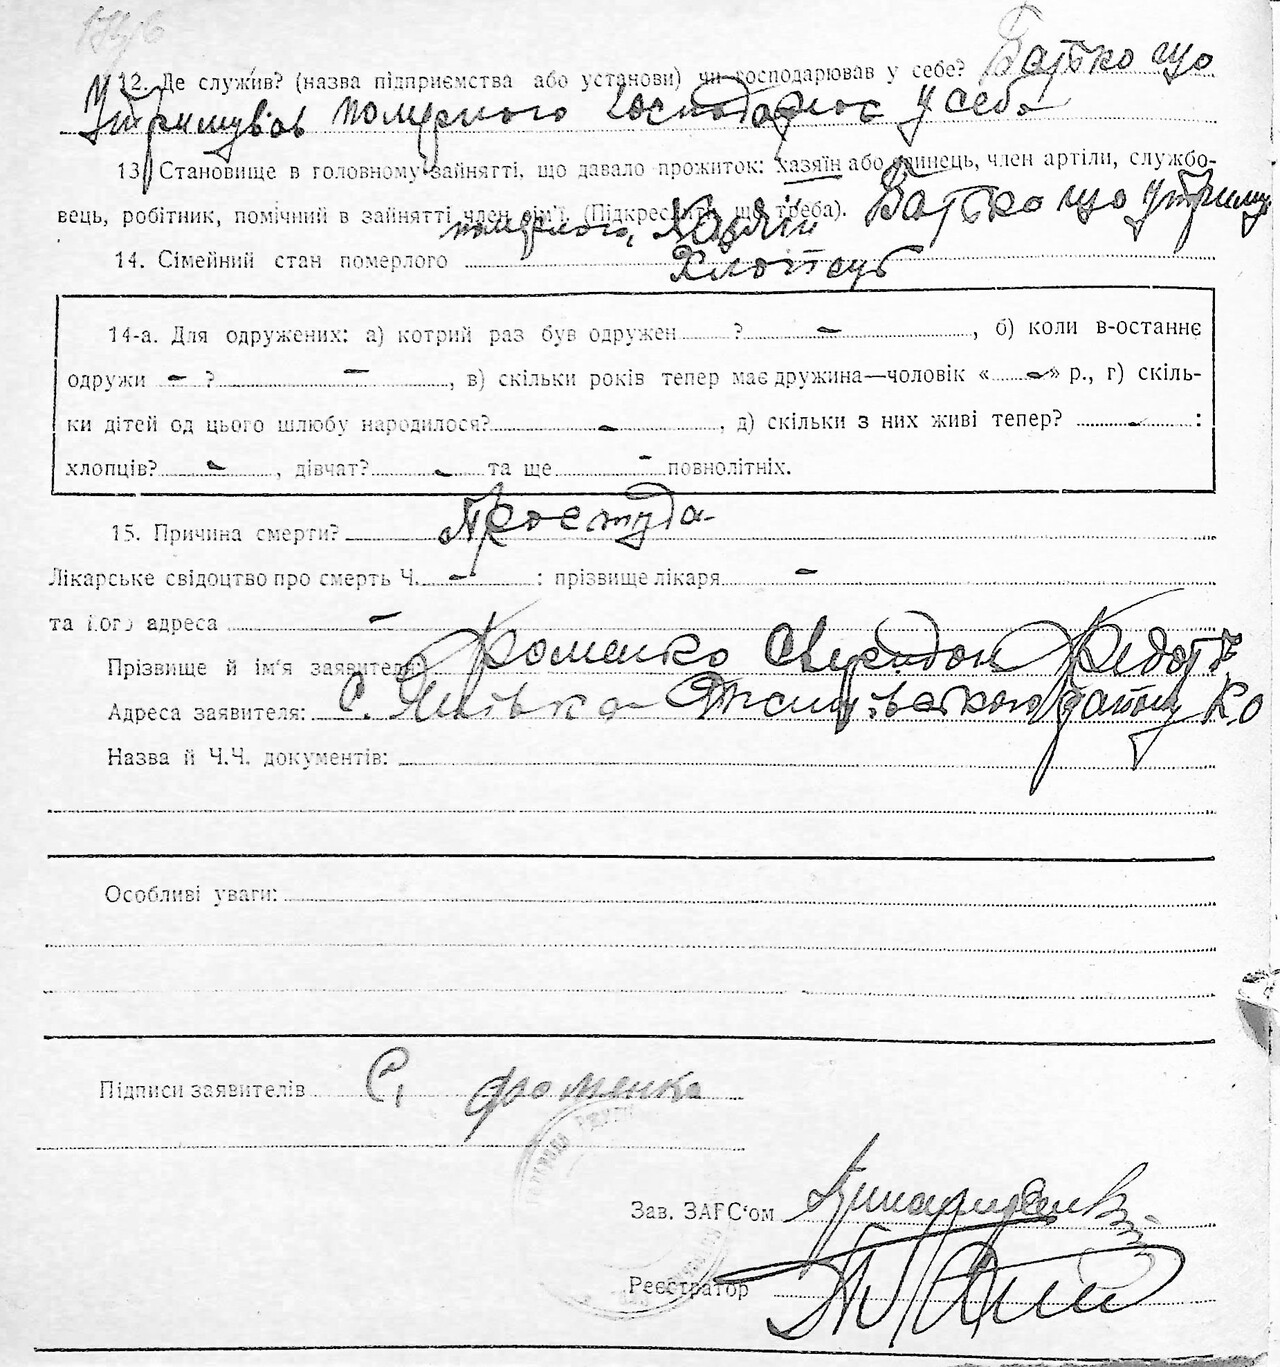 12. Де служив? (назва підприємства або установи) чи господарював у себе? Батько що
Утримував померлого господарює у себе
13. Становище в головному зайнятті, що давало прожиток: хазяїн або одинець, член артіли, службо-
вець, робітник, помічний в зайнятті член сім'ї. (Підкреслити що треба). Батько що утриму
померлого, Хазяїн
14. Сімейний стан померлого Хлопець
14-а. Для одружених: а) котрий раз був одружен ? – , б) коли в-останнє
одружи – ? – , в) скільки років тепер має дружина—чоловік « – » р., г) скіль-
ки дітей од цього шлюбу народилося? – , д) скільки з них живі тепер? – :
хлопців? – , дівчат? – та ще – повнолітніх.
15. Причина смерти? Простуда
Лікарське свідоцтво про смерть Ч. – : прізвище лікаря –
та його адреса –
Прізвище й ім'я заявителя: Фоменко Свиридон
Адреса заявителя: с. району К.О
Назва й Ч.Ч. документів:
Особливі уваги:
Підписи заявителів С. Фоменко
Зав. ЗАГС'ом
Реєстратор